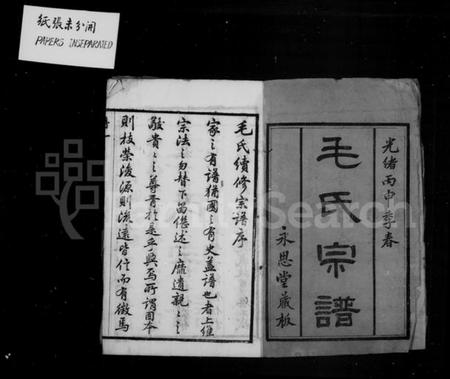 紙張未分開
PAPERS INSEPARATED
光緒丙申季春
毛氏宗譜
永思堂藏板
毛氏續修宗譜序
家之有譜猶國之有史蓋譜也者上維
宗法之勿替下啚繼述之靡遺親之之
敬貴之之尊胥於是乎興焉所謂固本
則枝榮浚源則流遠皆信而有徵焉